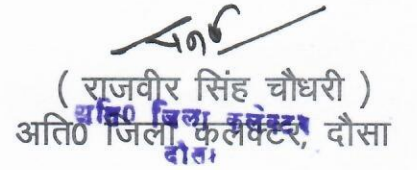 ( राजवीर सिंह चौधरी )
अति0 जिला कलेक्टर, दौसा
अति0 जिला कलेक्टर
दौसा